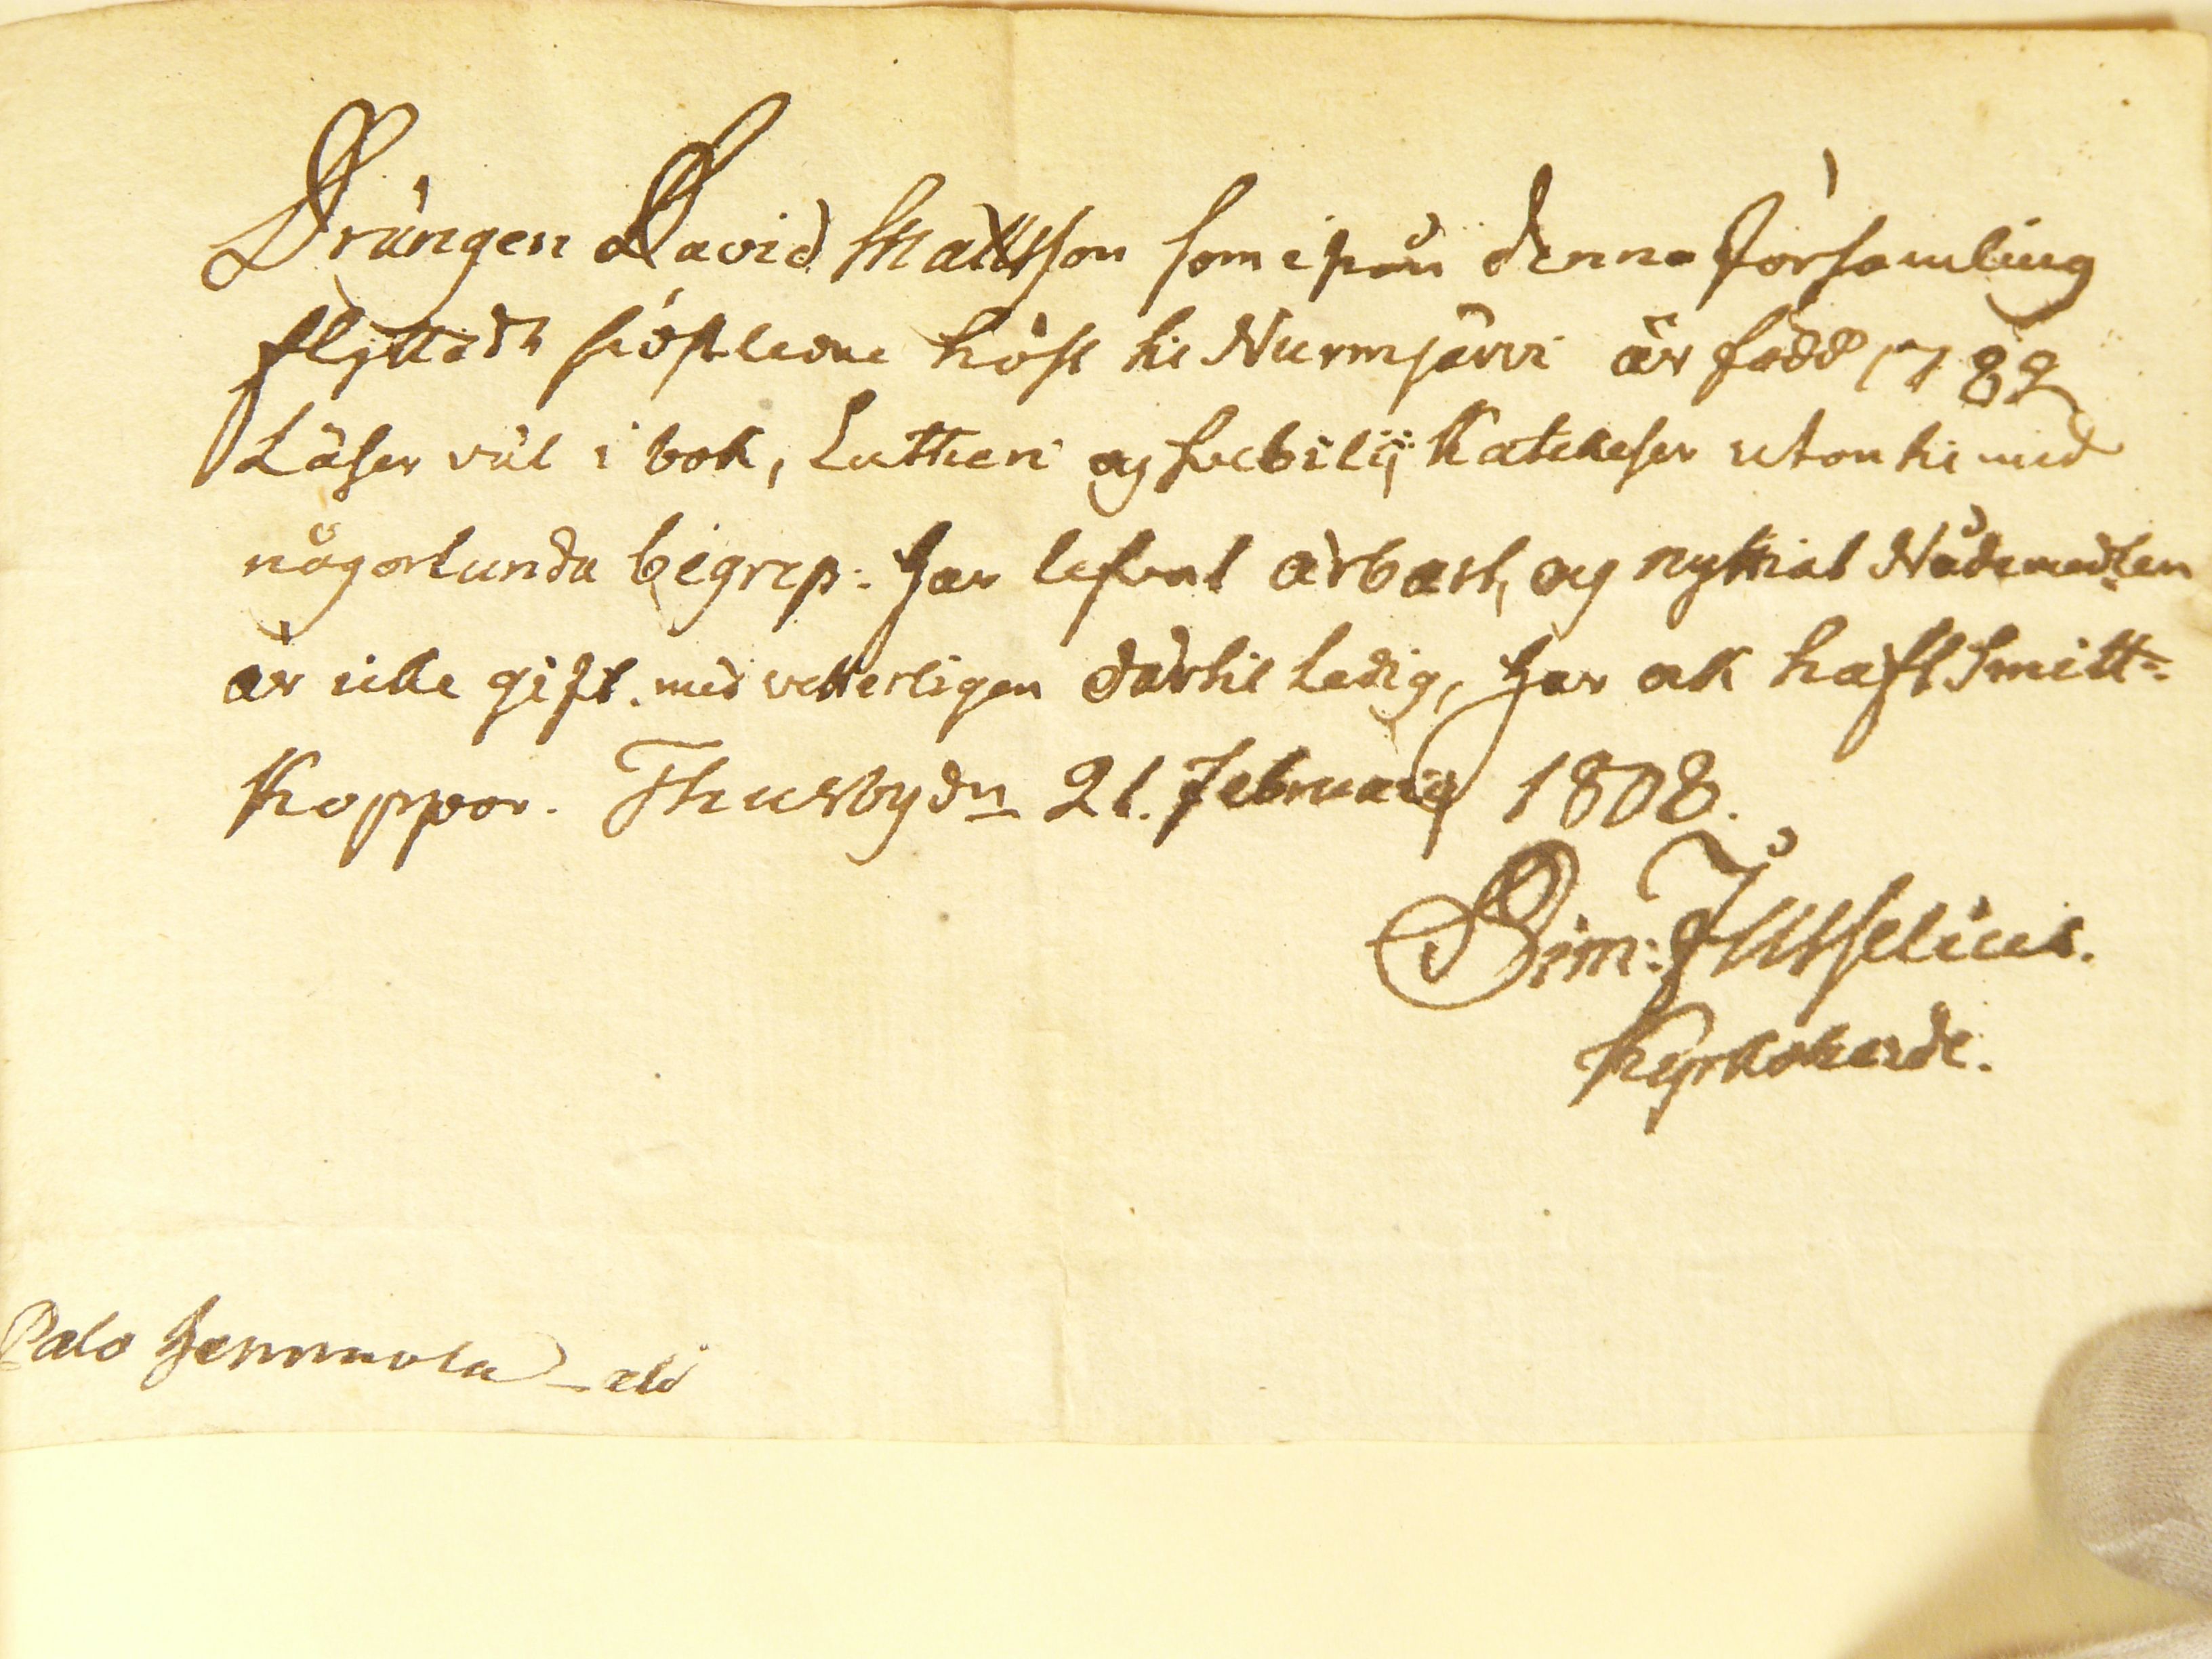 Drängen David Mattsson som ifrån denna Församling
flyttade sidstledne höst til Nurmjärvi är född 1782
Läser väl i bok, Lutheri og Svebilii Katekeser utontil med
någorlunda begrep: har lefvat ärbart, og nyttiat Nådemedlen
är icke gift. med vetterligen därtil ledig, har ok haft Smitt=
Koppor. Thusby dn 21. Februarii 1808.
Sim:
Kyrkoherde.
Palo